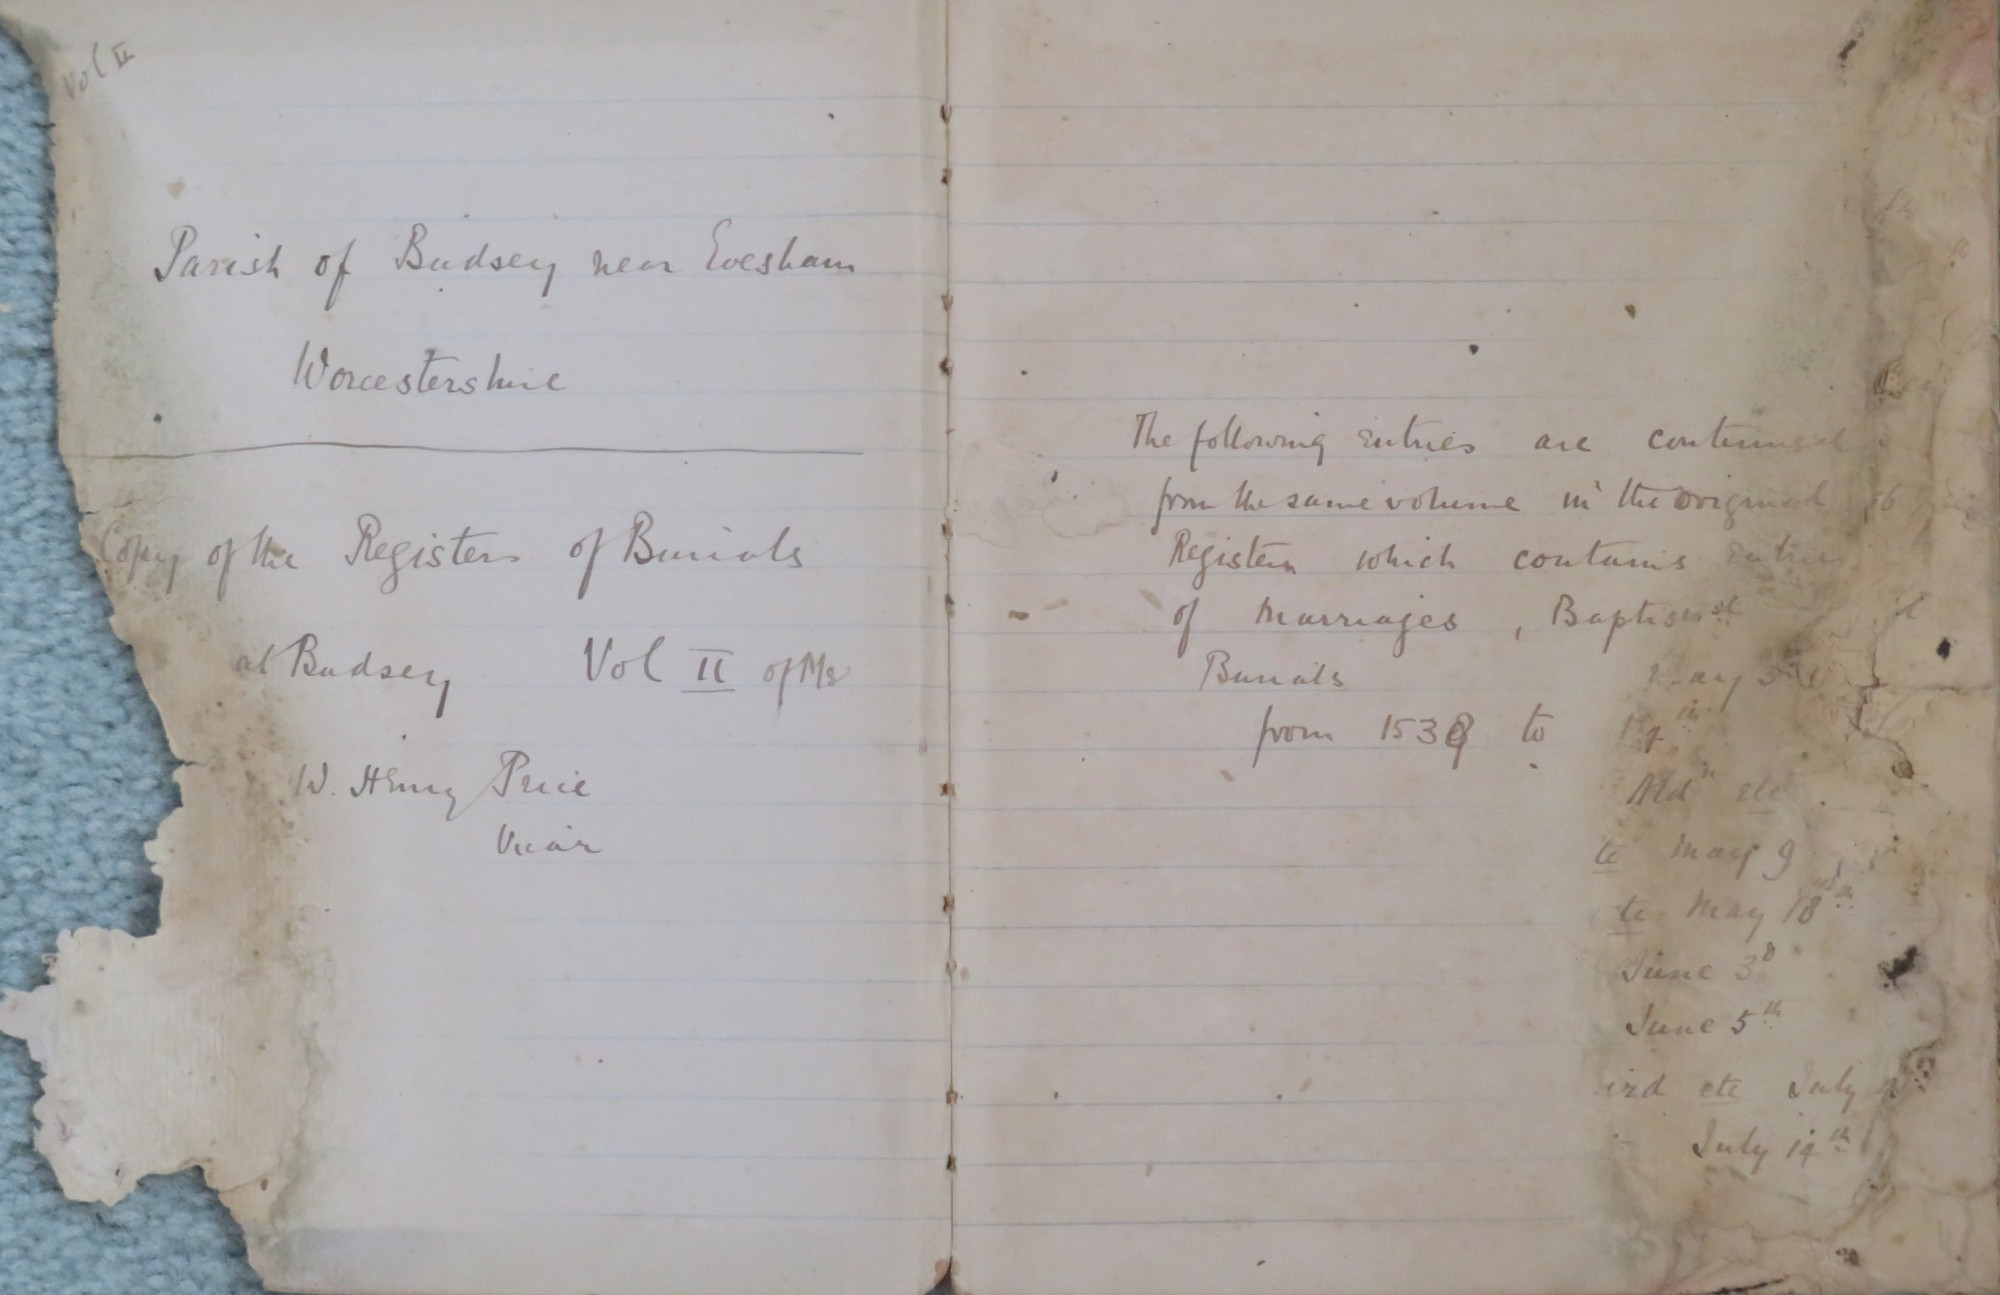 Vol II
Parish of Badsey near Evesham
Worcestershire
Copy of the Registers of Burials
at Badsey Vol II of Ms
W. Henry Price
Vicar
The following Entries are continued
from the same volume in the original
Registers which contains Entries
of Marriages, Baptisms
Burials
from 1538 to
etc
to May 9
to May 18th
June 3d
June 5th
etc July
July 14th